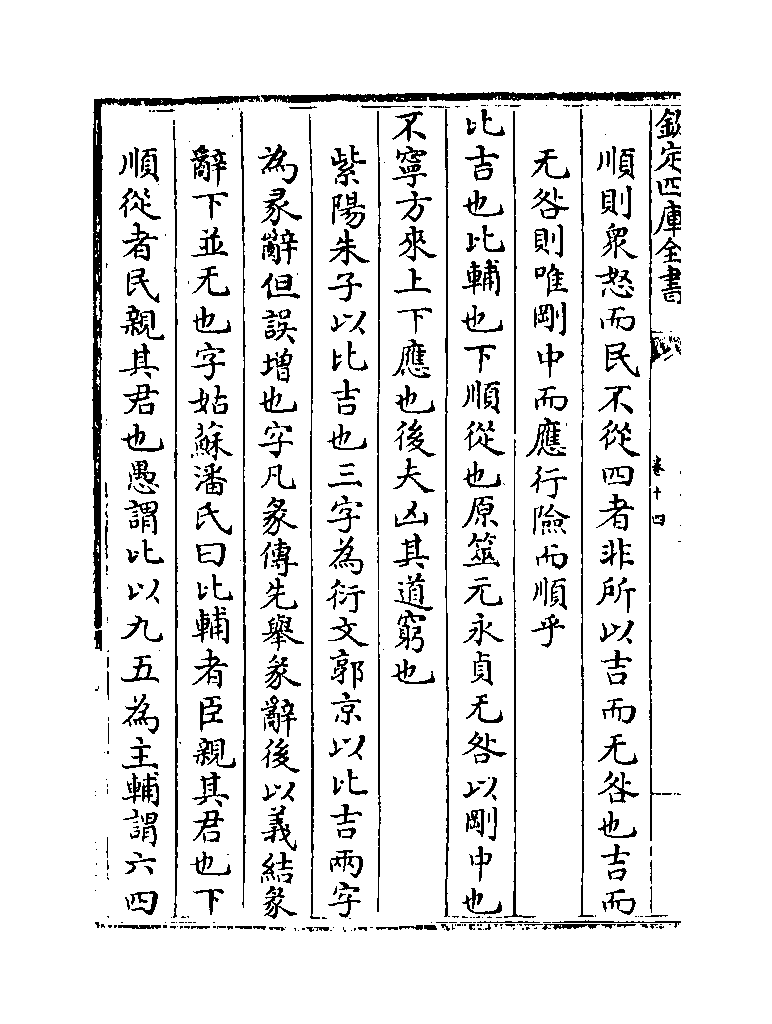 欽定四庫全書
卷十四
順則衆怒而民不從四者非所以吉而无咎也吉而
无咎則唯剛中而應行險而順乎
比吉也比輔也下順從也原筮元永貞无咎以剛中也
不寧方來上下應也後夫凶其道窮也
紫陽朱子以比吉也三字為衍文郭京以比吉兩字
為彖辭但誤增也字凡彖傳先舉彖辭後以義結彖
辭下並无也字姑蘇潘氏曰比輔者臣親其君也下
順從者民親其君也愚謂比以九五為主輔謂六四